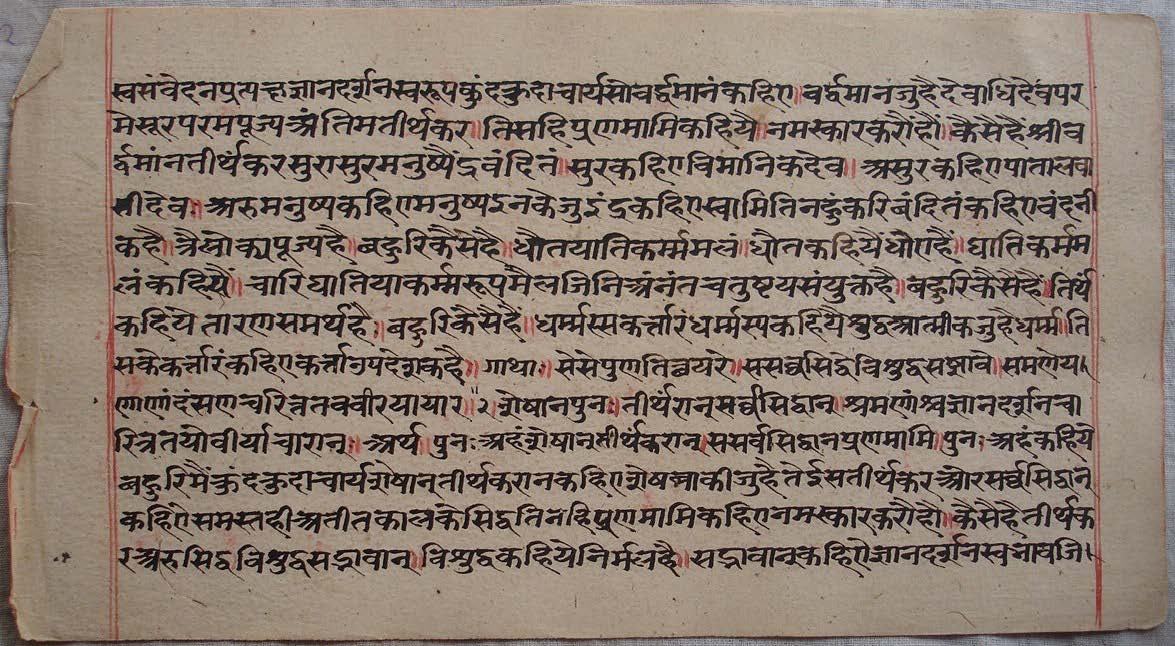 स्वसंवेदनप्रत्यक्षज्ञानदर्शनस्वरूपकुंदकुदाचार्यसोवर्द्धमानंकहिए॥वर्द्धमानजुहैदेवाधिदेवपर
मेसूरपरमपूज्यअंतिमतीर्थकर॥तिसहिप्रणमामिकहियै॥नमस्कारकरौंहौं॥कैसैहैंश्रीव
र्द्धमांनतीर्थकरसुरासुरमनुष्यैंद्रवंदितं॥सुरकहिएविमानिकदेव॥असुरकहिएपातालवा
सीदेव॥अरुमनुष्यकहिएमनुष्यइनकेजुइंद्रकहिएस्वामितिनहुंकरिबंदितंकहिएवंदनी
कहै॥त्रैलोक्यपूज्यहै॥बहुरिकैसेहै॥धौतघातिकर्म्ममलं॥धौतकहियेंधोएहैं॥घातिकर्मम
लंकहियें॥चारिघातियाकर्म्मरूपमैलजिनिअंनंतचतुष्टयसंयुक्तहै॥बहुरिकैसैहैं॥तिर्थं
कहियेतारणसमर्थहै॥बहुरिकैसैहै॥धर्म्मस्सकर्त्तारंधर्म्मस्यकहियैशुद्धआत्मीकजुहैधर्म्म॥ति
सकेकर्त्तारंकहिएकर्त्ताउपदेशकहै॥गाथा॥सेसेपुणतिच्चयरे॥ससव्वसिद्देविशुद्धसज्ञावे॥समणेय।
णाणंदंसणचरित्ततववीरयायारे॥२॥शेषानपुनः॥तीर्थरानूसर्व्वसिद्वान्॥श्रमणंश्चज्ञानदर्शनचा
रित्रतपोवीर्याचारान्॥अर्थ॥पुनःअहंशेषानूतीर्थंकरान्॥ससर्वसिद्वानप्रणमामि॥पुनःअहंकहिये
बहुरिमैंकुंदकुदाचार्यशेषान्तीर्थकरानकहिएशेषबाकीजुहैतेईसतीर्थकरऔरसर्व्वसिद्वान्
कहिऐसमस्तहीअतीतकालकेसिद्धतिनहिप्रणमामिकहिएनमस्कारकरौहौं॥कैसेहैतीर्थक
रअरुसिद्धविशुद्धसद्भावान्॥विशुद्धकहियेनिर्मलहै॥सद्भावान्कहिऐज्ञानदर्शनस्वभावजि।